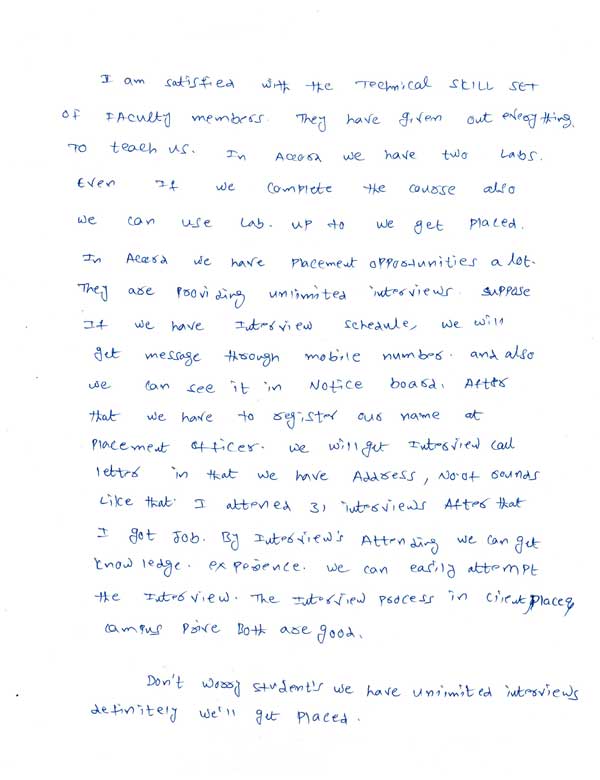 I am satisfied with the Technical SKILL SET
OF FAculty members. They have given out everything.
To teach us. In Accord we have two Labs.
Even If we complete the course also
we can use Lab. up to we get placed.
In Accord we have placement opportunities a lot.
They are providing unlimited interviews. suppose
If we have Interview schedule, we will
get message through mobile number. and also
we can see it in Notice board. After
that we have to register our name at
placement officer. we will get Interview call
letter in that we have Address, No.of rounds
Like that. I attened 31 interviews After that
I got Job. By Interview's Attending we can get
knowledge. experience. we can easily attempt
the Interview. The Interview process in client place,
campus Drive Both are good.
Don't worry student's we have unlimited interviews
definitely we'll get placed.